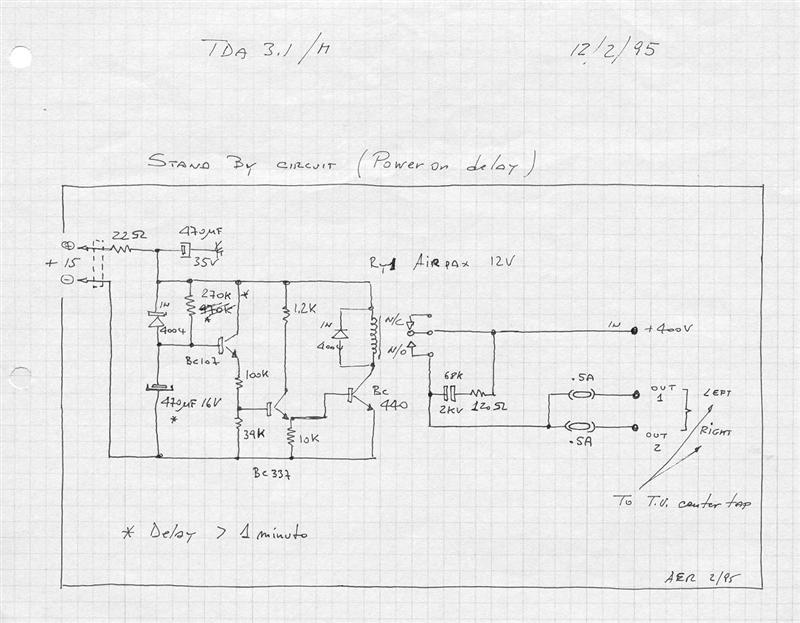 TDA 3.1/M 12/2/95
STAND BY CIRCUIT (Power on delay)
22Ω
470µF
35V
+ 15
Ry1 AIRPAX 12V
270K *
470K
*
1.2K
1N
4004
1N
4004
N/C
N/O
IN +400V
BC107
100K
BC
440
68K
2KV
120Ω
.5A
OUT
1
LEFT
470µF 16V
*
39K
10K
.5A
OUT
2
RIGHT
BC337
To T.U. center tap
* Delay > 1 minuto
AER 2/95